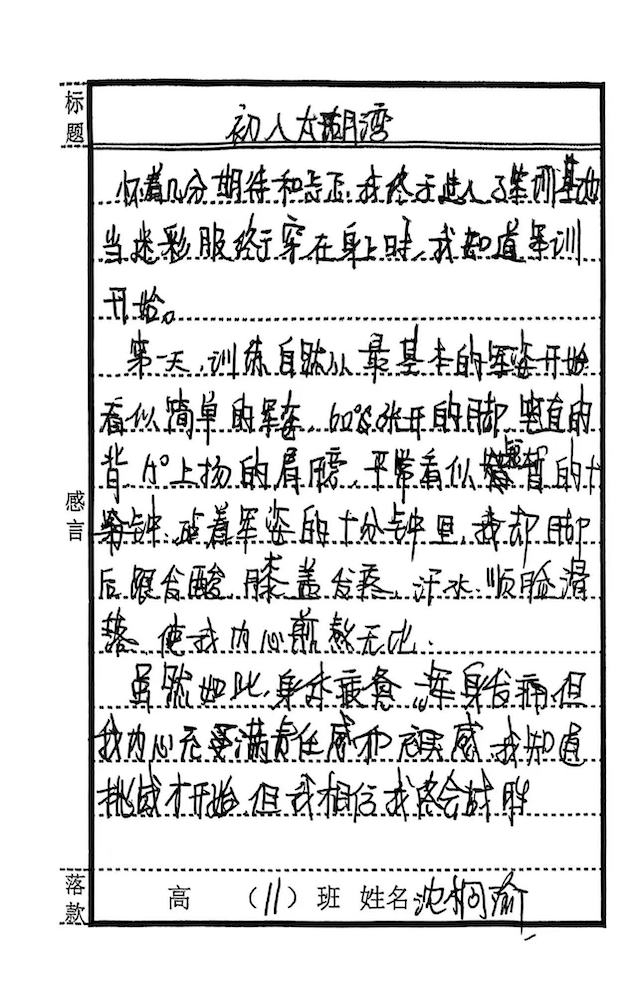 标题
初入太湖湾
怀着几分期待和忐忑,我终于进入了军训基地
当迷彩服终于穿在身上时,我知道军训
开始。
第一天,训练自然从最基本的军姿开始
看似简单的军姿,60°张开的脚,坚直的
背,15°上扬的肩膀,平常看似短暂的十
分钟,站着军姿的十分钟里,我却脚
后跟发酸,膝盖发疼,汗水顺脸滑
落,使我内心煎熬无比.
虽然如此,身体疲惫,浑身发痛,但
我内心充满责任感和充实感,我知道
挑战才开始,但我相信我终会战胜
感言
落款
高 (11) 班 姓名 沈桐瑜